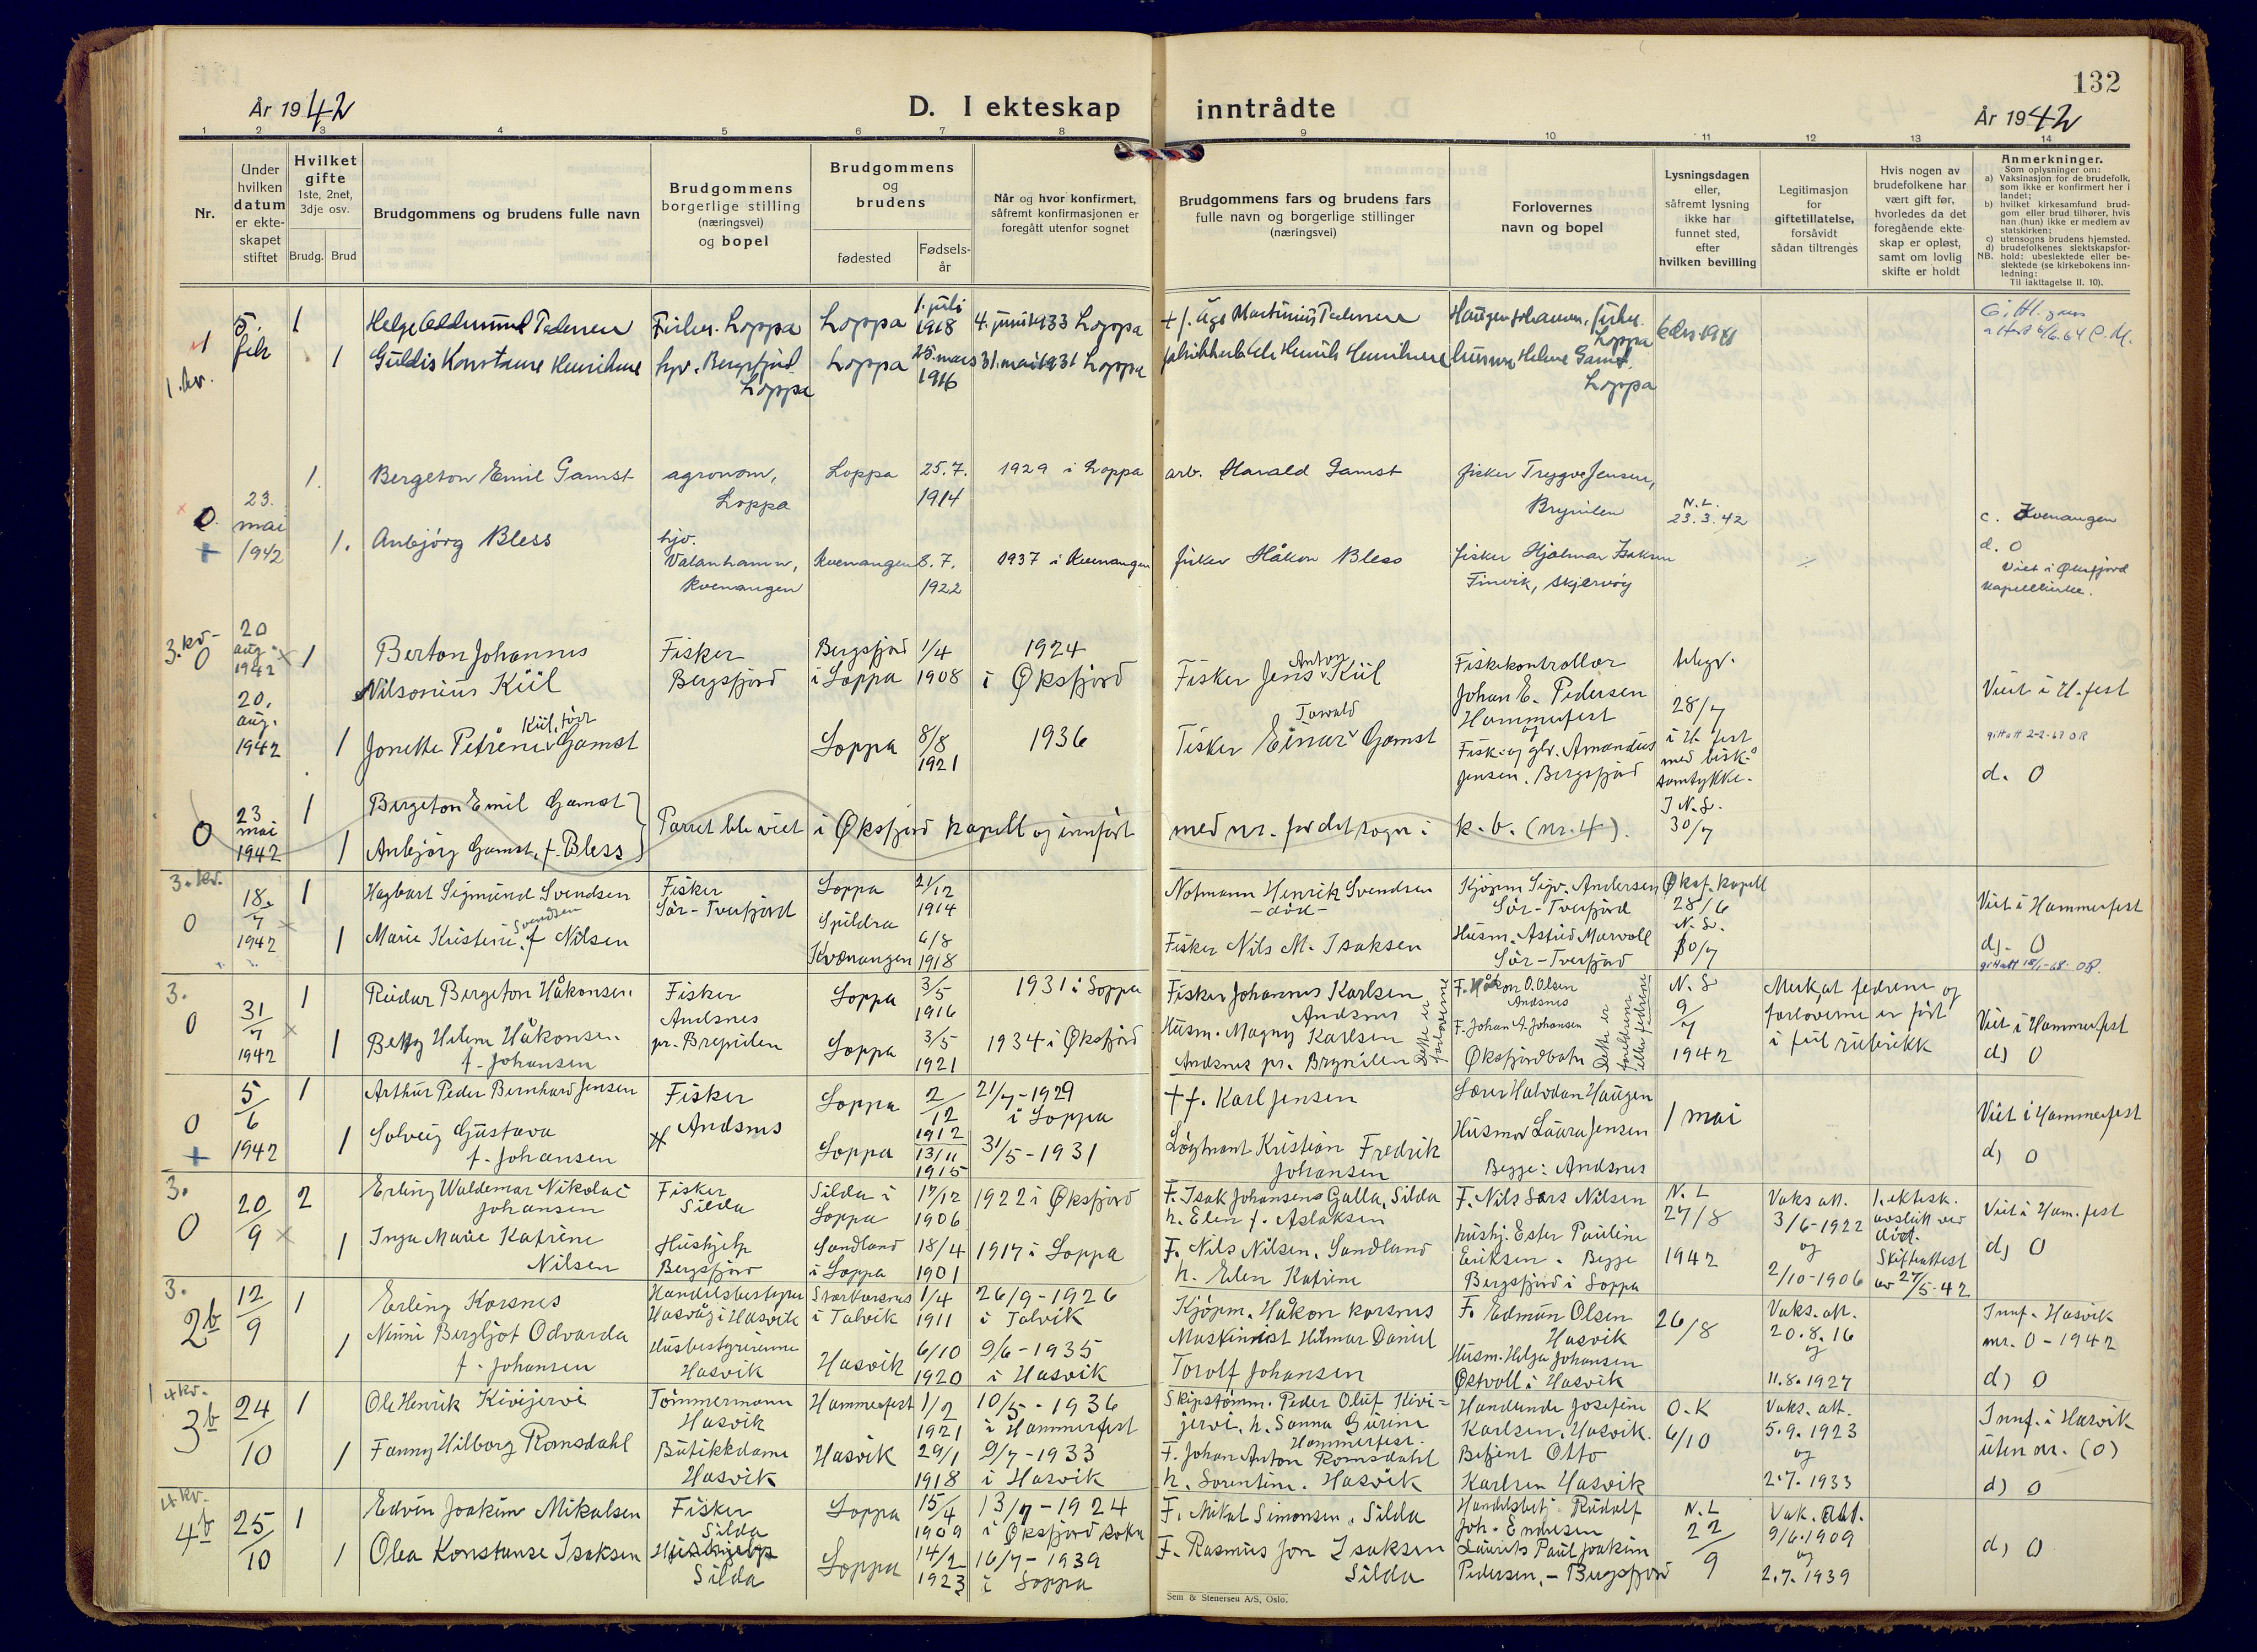 132
År 1942
D. I ekteskap inntrådte
År 1942
1 2 3 4 5 6 7 8 9 10 11 12 13 14
Nr.
Under
hvilken
datum
er ekte-
skapet
stiftet
Hvilket
gifte
1ste, 2net,
3dje osv.
Brudg. Brud
Brudgommens og brudens fulle navn
Brudgommens
borgerlige stilling
(næringsvei)
og bopel
Brudgommens
og
brudens
fødested
Fødsels-
år
Når og hvor konfirmert,
såfremt konfirmasjonen er
foregått utenfor sognet
Brudgommens fars og brudens fars
fulle navn og borgerlige stillinger
(næringsvei)
Forlovernes
navn og bopel
Lysningsdagen
eller,
såfremt lysning
ikke har
funnet sted,
efter
hvilken bevilling
Legitimasjon
for
giftetillatelse,
forsåvidt
sådan tiltrenges
Hvis nogen av
brudefolkene har
vært gift før,
hvorledes da det
foregående ekte-
skap er opløst,
samt om lovlig
skifte er holdt
Anmerkninger.
Som oplysninger om:
a) Vaksinasjon for de brudefolk,
som ikke er konfirmert her i
landet;
b) hvilket kirkesamfund brud-
gom eller brud tilhører, hvis
han (hun) ikke er medlem av
statskirken;
c) utensogns brudens hjemsted.
d) brudefolkenes slektskapsfor-
NB. hold: ubeslektede eller be-
slektede (se kirkebokens inn-
ledning:
Til iakttagelse II. 10).
1
1. kv.
5.
feb
1
1
Fisker. Loppa
Loppa
1. juli
1918
4. juni 1933 Loppa
Guldis Konstanse Henriksen
hyv. Bergsfjord
Loppa
Loppa
25. mars
1916
31. mai 1931 Loppa
Loppa
Helene Gamst.
Loppa
0
+
23.
mai
1942
1.
Bergeton Emil Gamst
agronom,
Loppa
Loppa
25.7.
1914
1929 i Loppa
arb. Harald Gamst
fisker Trygve Jensen,
N.L.
23.3.42
1.
Anbjørg Bless
hjv.
Valanhamn,
Kvenangen
Kvenangen
8.7.
1922
1937 i Kvenangen
fisker Håkon Bless
fisker Hjalmar Isaksen
Finvik, Skjervøy
c. Kvenangen
d. 0
Viet i Øksfjord
kapellkirke.
3. kv-
0
20
aug.
1942
1
Berton Johannes
Nilsonius Kiil
Fisker
Bergsfjord
Bergsfjord
i Loppa
1/4
1908
1924
i Øksfjord
Fisker Jens Anton Kiil
Fiskekontrollør
Johan E. Pedersen
Hammerfest
og
telegr.
28/7
i H. fest
med bisk.
samtykke.
Viet i H. fest
20.
aug.
1942
1
Jonette Petrine Kiil, født Gamst
Loppa
8/8
1921
1936
Fisker Einar Torvald Gamst
Fisk. og gbr. Amandus
Jensen. Bergsfjord
d. 0
0
23
mai
1942
1
1
Bergeton Emil Gamst
Anbjørg Gamst, f. Bless
Parret ble viet i Øksfjord kapell og innført med nr. for det sogn i k.b. (nr. 4).
I N.L.
30/7
3. kv.
0
18.
7
1942
1
Hagbart Sigmund Svendsen
Fisker
Sör-Tverfjord
Loppa
21/12
1914
Notmann Henrik Svendsen
-död-
Kjöpm Sigv. Andersen
Sör-Tverfjord
Øksf. kapell
28/6
N.L.
Viet i Hammerfest
1
Marie Kristine Svendsen f Nilsen
Spildra
Kvænangen
6/8
1918
Fisker Nils M. Isaksen
Husm. Astrid Marvoll
Sör-Tverfjord
d). 0
3.
0
31/7
1942
1
Reidar Bergeton Håkonsen
Fisker
Andsnes
pr. Brepulen
Loppa
3/5
1916
1931 i Loppa
Fisker Johannes Karlsen
Andsnes
F. Håkon O. Olsen
Andsnes
N.L
9/7
1942
Merk, at fedrene og
forloverne er ført
i feil rubrikk
Viet i Hammerfest
d) 0
1
Betty Helene Håkonsen
f. Johansen
Loppa
3/5
1921
1934 i Øksfjord
Husm. Magny Karlsen
Andsnes pr. Brepulen
Dette er
forloverne
F. Johan A. Johansen
Øksfjordbotn
Dette er
foreldrene
eller fedrene
0
+
5/6
1942
1
Arthur Peder Bernhard Jensen
Fisker
Andsnes
Loppa
2/12
1912
21/7-1929
i Loppa
+ f. Karl Jensen
Lærer Halvdan Haugen
1 mai
Viet i Hammerfest
1
Solveig Gustava
f. Johansen
Loppa
13/11
1915
31/5-1931
Kristian Fredrik
Johansen
Husmor Laura Jensen
Begge: Andsnes
d) 0
3.
0
20/9
2
Erling Waldemar Nikolai
Johansen
Fisker
Silda
Silda i
Loppa
17/12
1906
1922 i Øksfjord
F. Isak Johansen Galla, Silda
h. Elen f. Aslaksen
F. Nils Lars Nilsen
N.L
27/8
1942
Vaks att.
3/6-1922
og
2/10-1906
1. ektesk.
avslutt ved
död.
Skifteattest
av 27/5-42
Viet i Ham.fest
d) 0
1
Inga Marie Katrine
Nilsen
Hushjelp
Bergsfjord
Sandland
i Loppa
18/4
1901
1917 i Loppa
F. Nils Nilsen, Sandland
h. Elen Katrine
hushj. Ester Pauline
Eriksen. Begge
Bergsfjord i Loppa
3.
2b
12/9
1
Erling Korsnes
Handelsbestyrer
Hasvåg i Hasvik
Storkorsnes
i Talvik
1/4
1911
26/9-1926
i Talvik
Kjöpm. Håkon Korsnes
F. Edmun Olsen
Hasvik
26/8
Vaks. att.
20.8.16
og
11.8.1927
Innf. Hasvik
nr. 0-1942
d) 0
1
Ninni Bergljot Odvarda
f. Johansen
Husbestyrerinne
Hasvik
Hasvik
6/10
1920
9/6-1935
i Hasvik
Maskinist Hilmar Daniel
Torolf Johansen
Husm. Helga Johansen
Østvoll i Hasvik
4 kv.
3b
24/10
1
Ole Henrik Kivijervi
Tömmermann
Hasvik
Hammerfest
1/2
1921
10/5-1936
i Hammerfest
Skipstömm. Peder Oluf Kivi=
jervi, h. Sanna Gurine
Hammerfest.
Handlende Josefine
Karlsen, Hasvik.
O.K
6/10
Vaks. att.
5.9.1923
og
2.7.1933
Innf. i Hasvik
uten nr. (0)
d) 0
1
Fanny Hilborg Romsdahl
Butikkdame
Hasvik
Hasvik
29/1
1918
9/7-1933
i Hasvik
F. Johan Anton Romsdahl
h. Sorentine. Hasvik
Betjent Otto
Karlsen Hasvik
4 kv.
4b
25/10
1
Edvin Joakim Mikalsen
Fisker
Silda
Loppa
15/4
1909
13/7-1924
i Øksfjord sokn
F. Mikal Simonsen, Silda
Handelsbetj. Rudolf
Joh. Endresen
N.L
22/9
Vak. Att.
9/6.1909
og
2.7.1939
d) 0
1
Olea Konstanse Isaksen
Hushjelp
Silda
Loppa
14/2
1923
16/7-1939
i Loppa
F. Rasmus Jon Isaksen
Silda
Laurits Paul Joakim
Pedersen, - Bergsfjord
Sem & Stenersen A/S, Oslo.